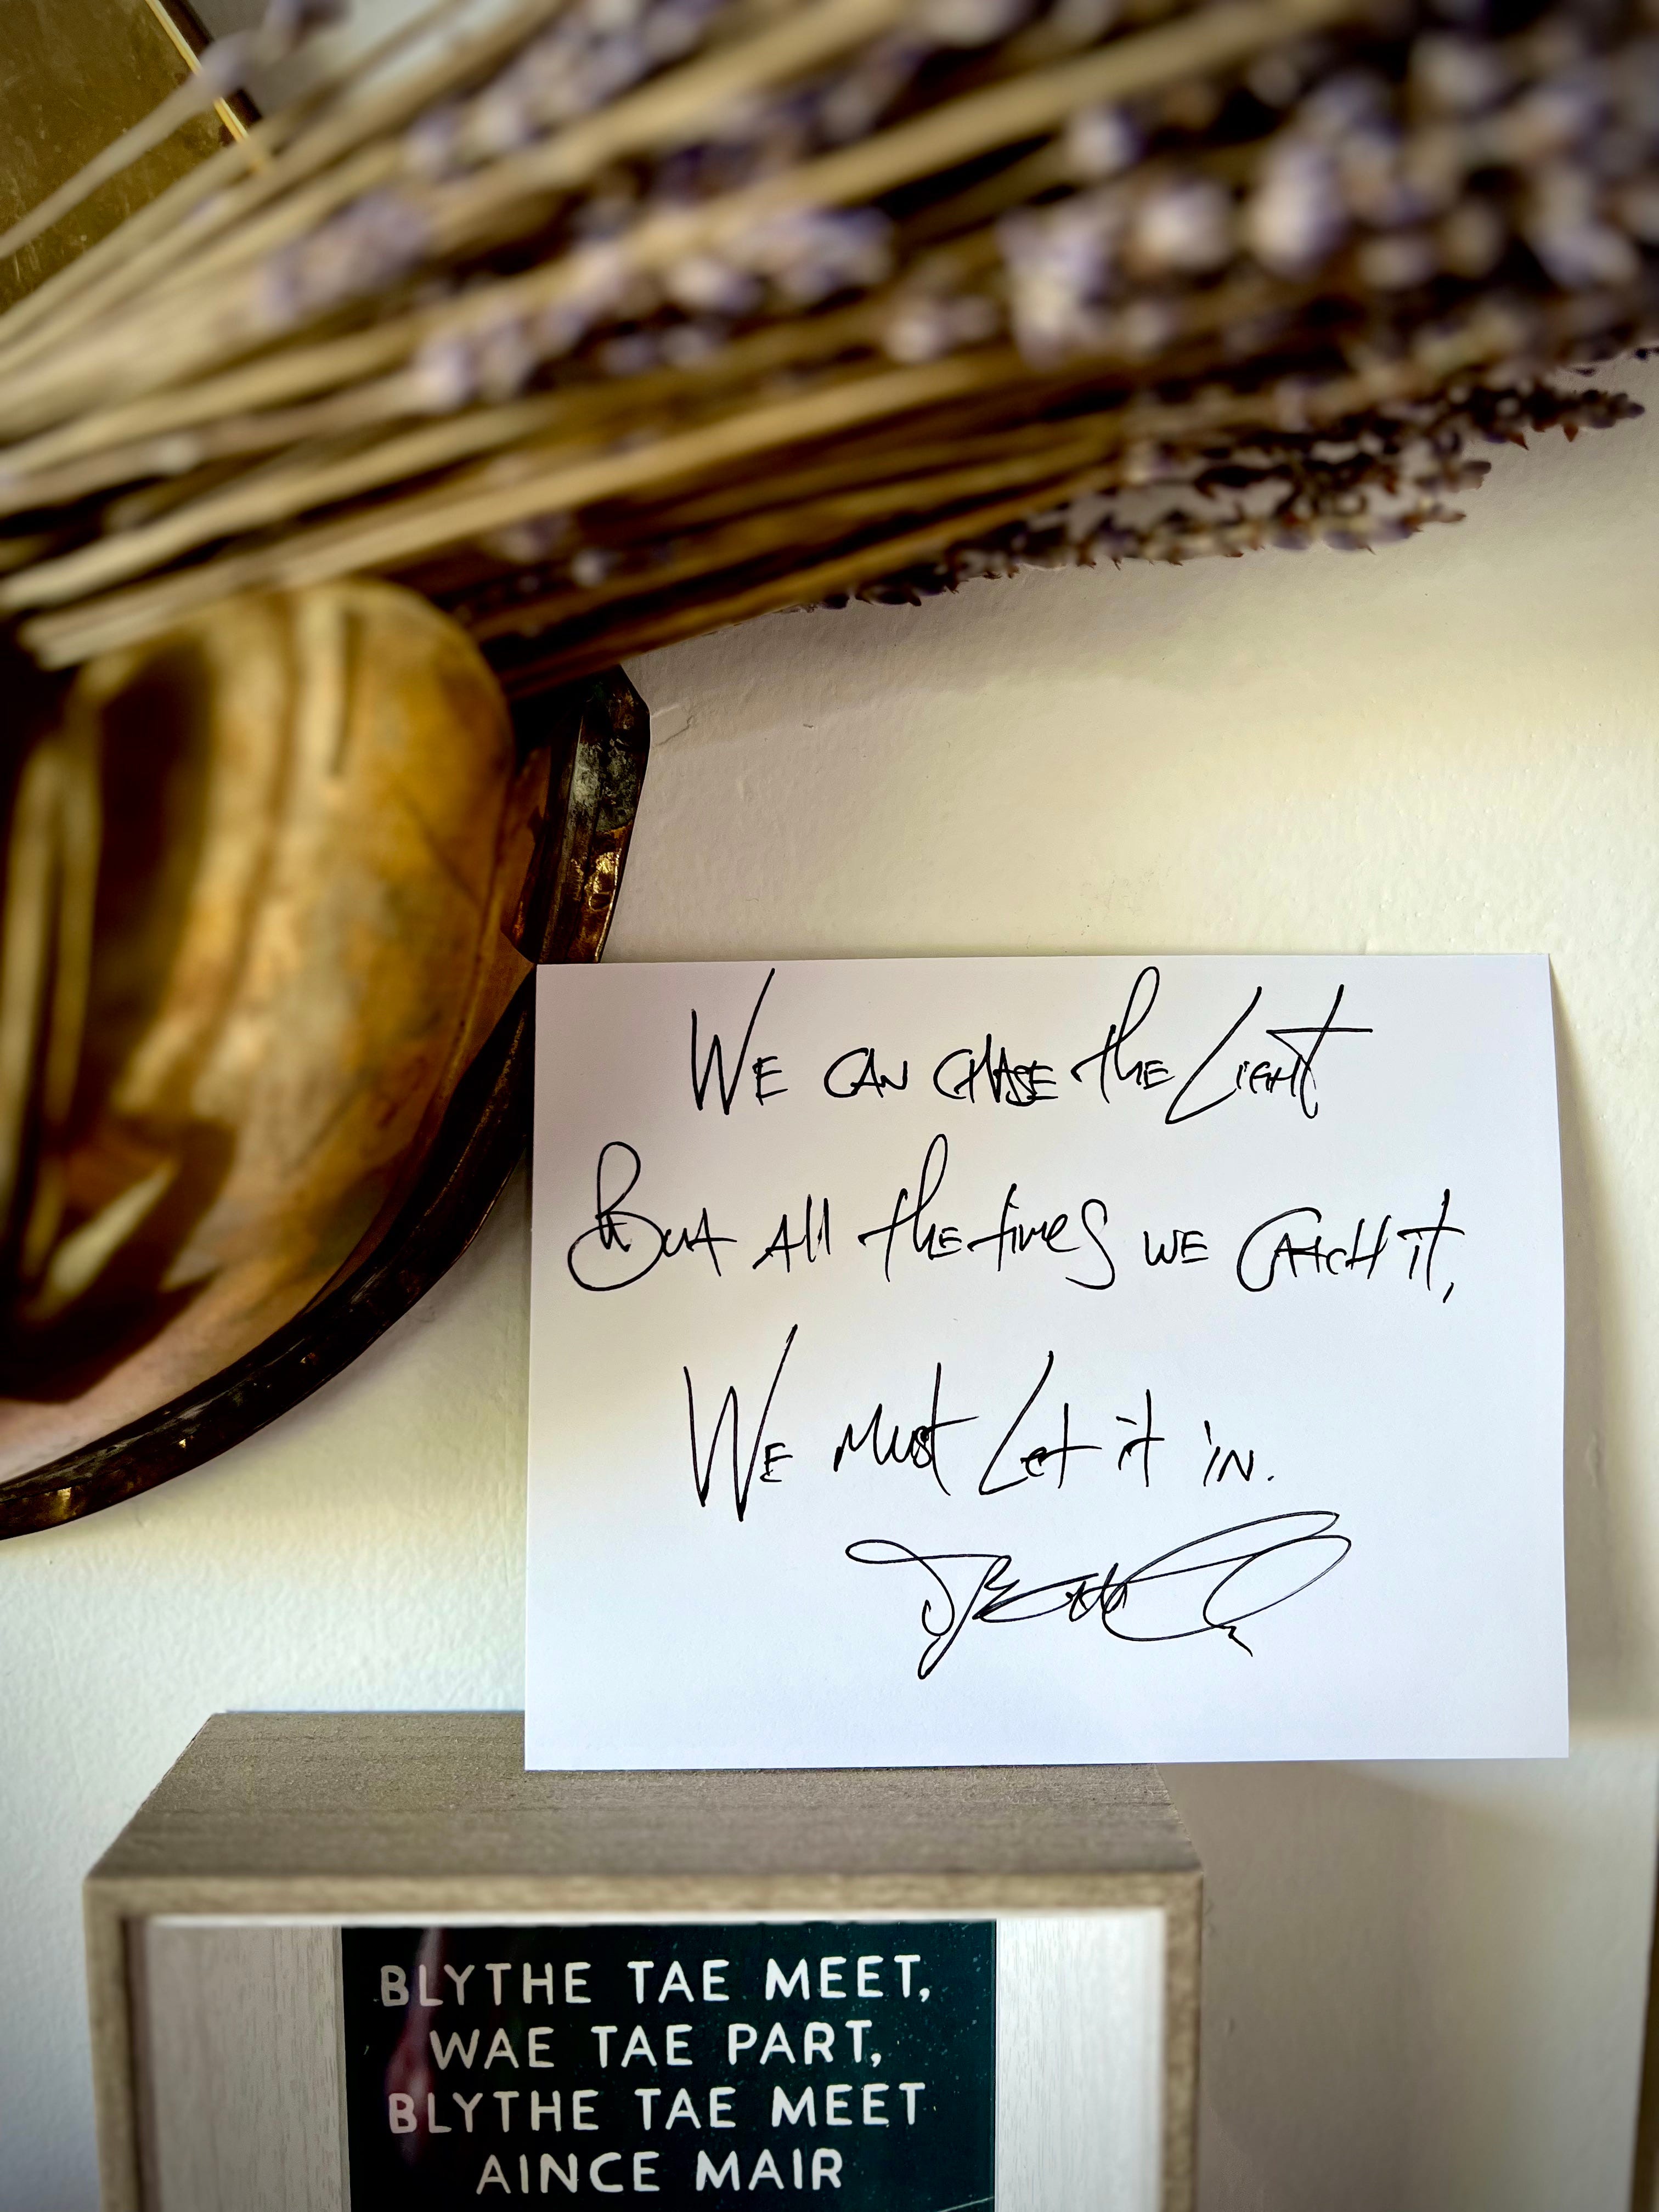 We can chase the Light
But all the times we catch it,
We must Let it in.
BLYTHE TAE MEET,
WAE TAE PART,
BLYTHE TAE MEET
AINCE MAIR